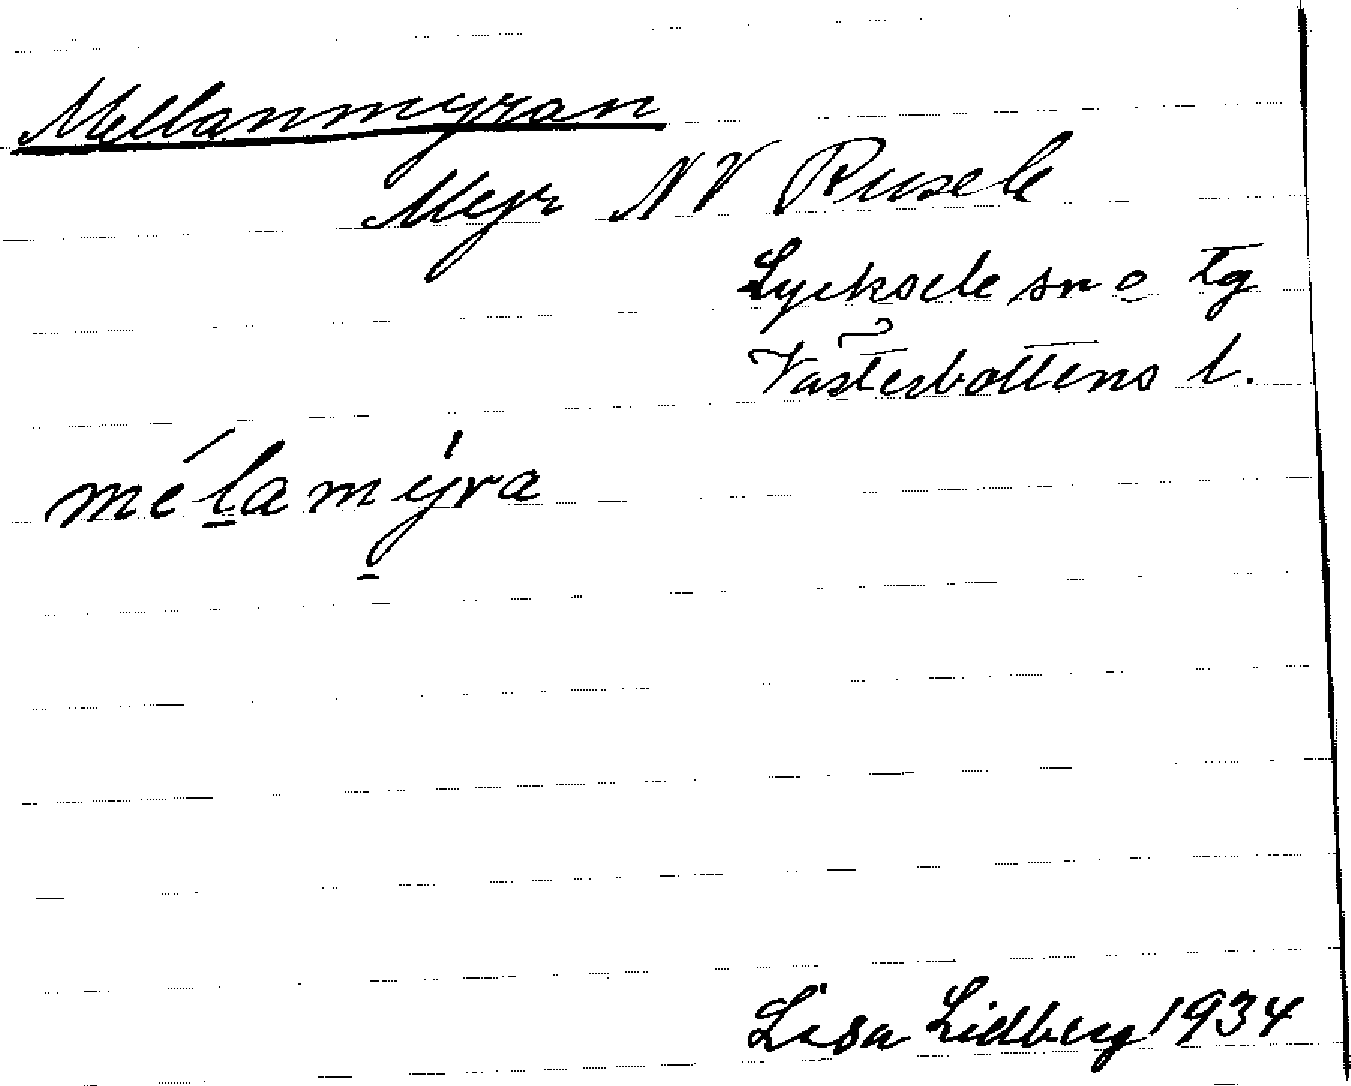 Mellanmyran
Myr NV Rusele
Lycksele sn o tg
Västerbottens l.
mélamýra
Lisa Lidberg 1934